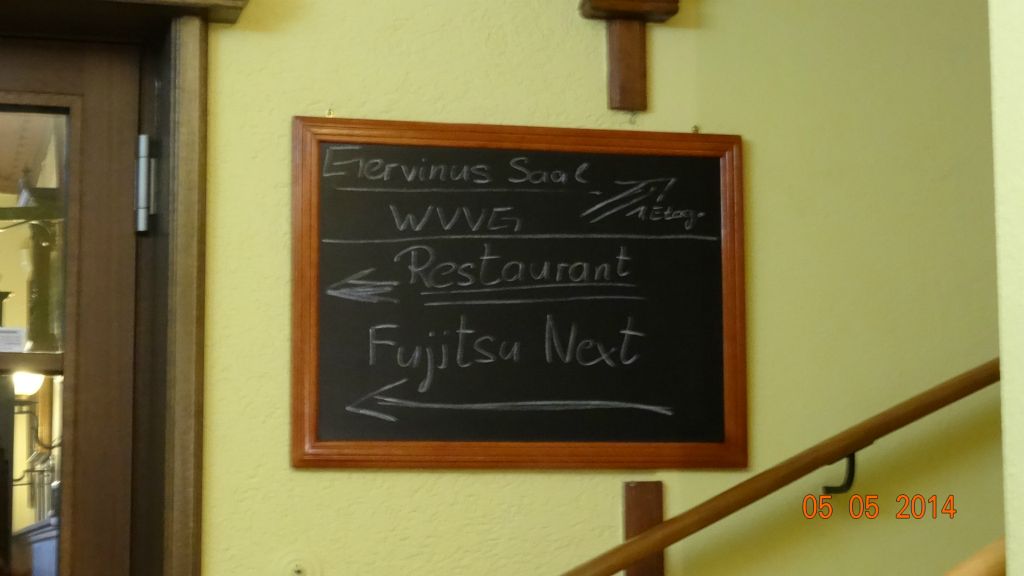 Gervinus Saal
WVVG
1. Etage
Restaurant
Fujitsu Next
05 05 2014